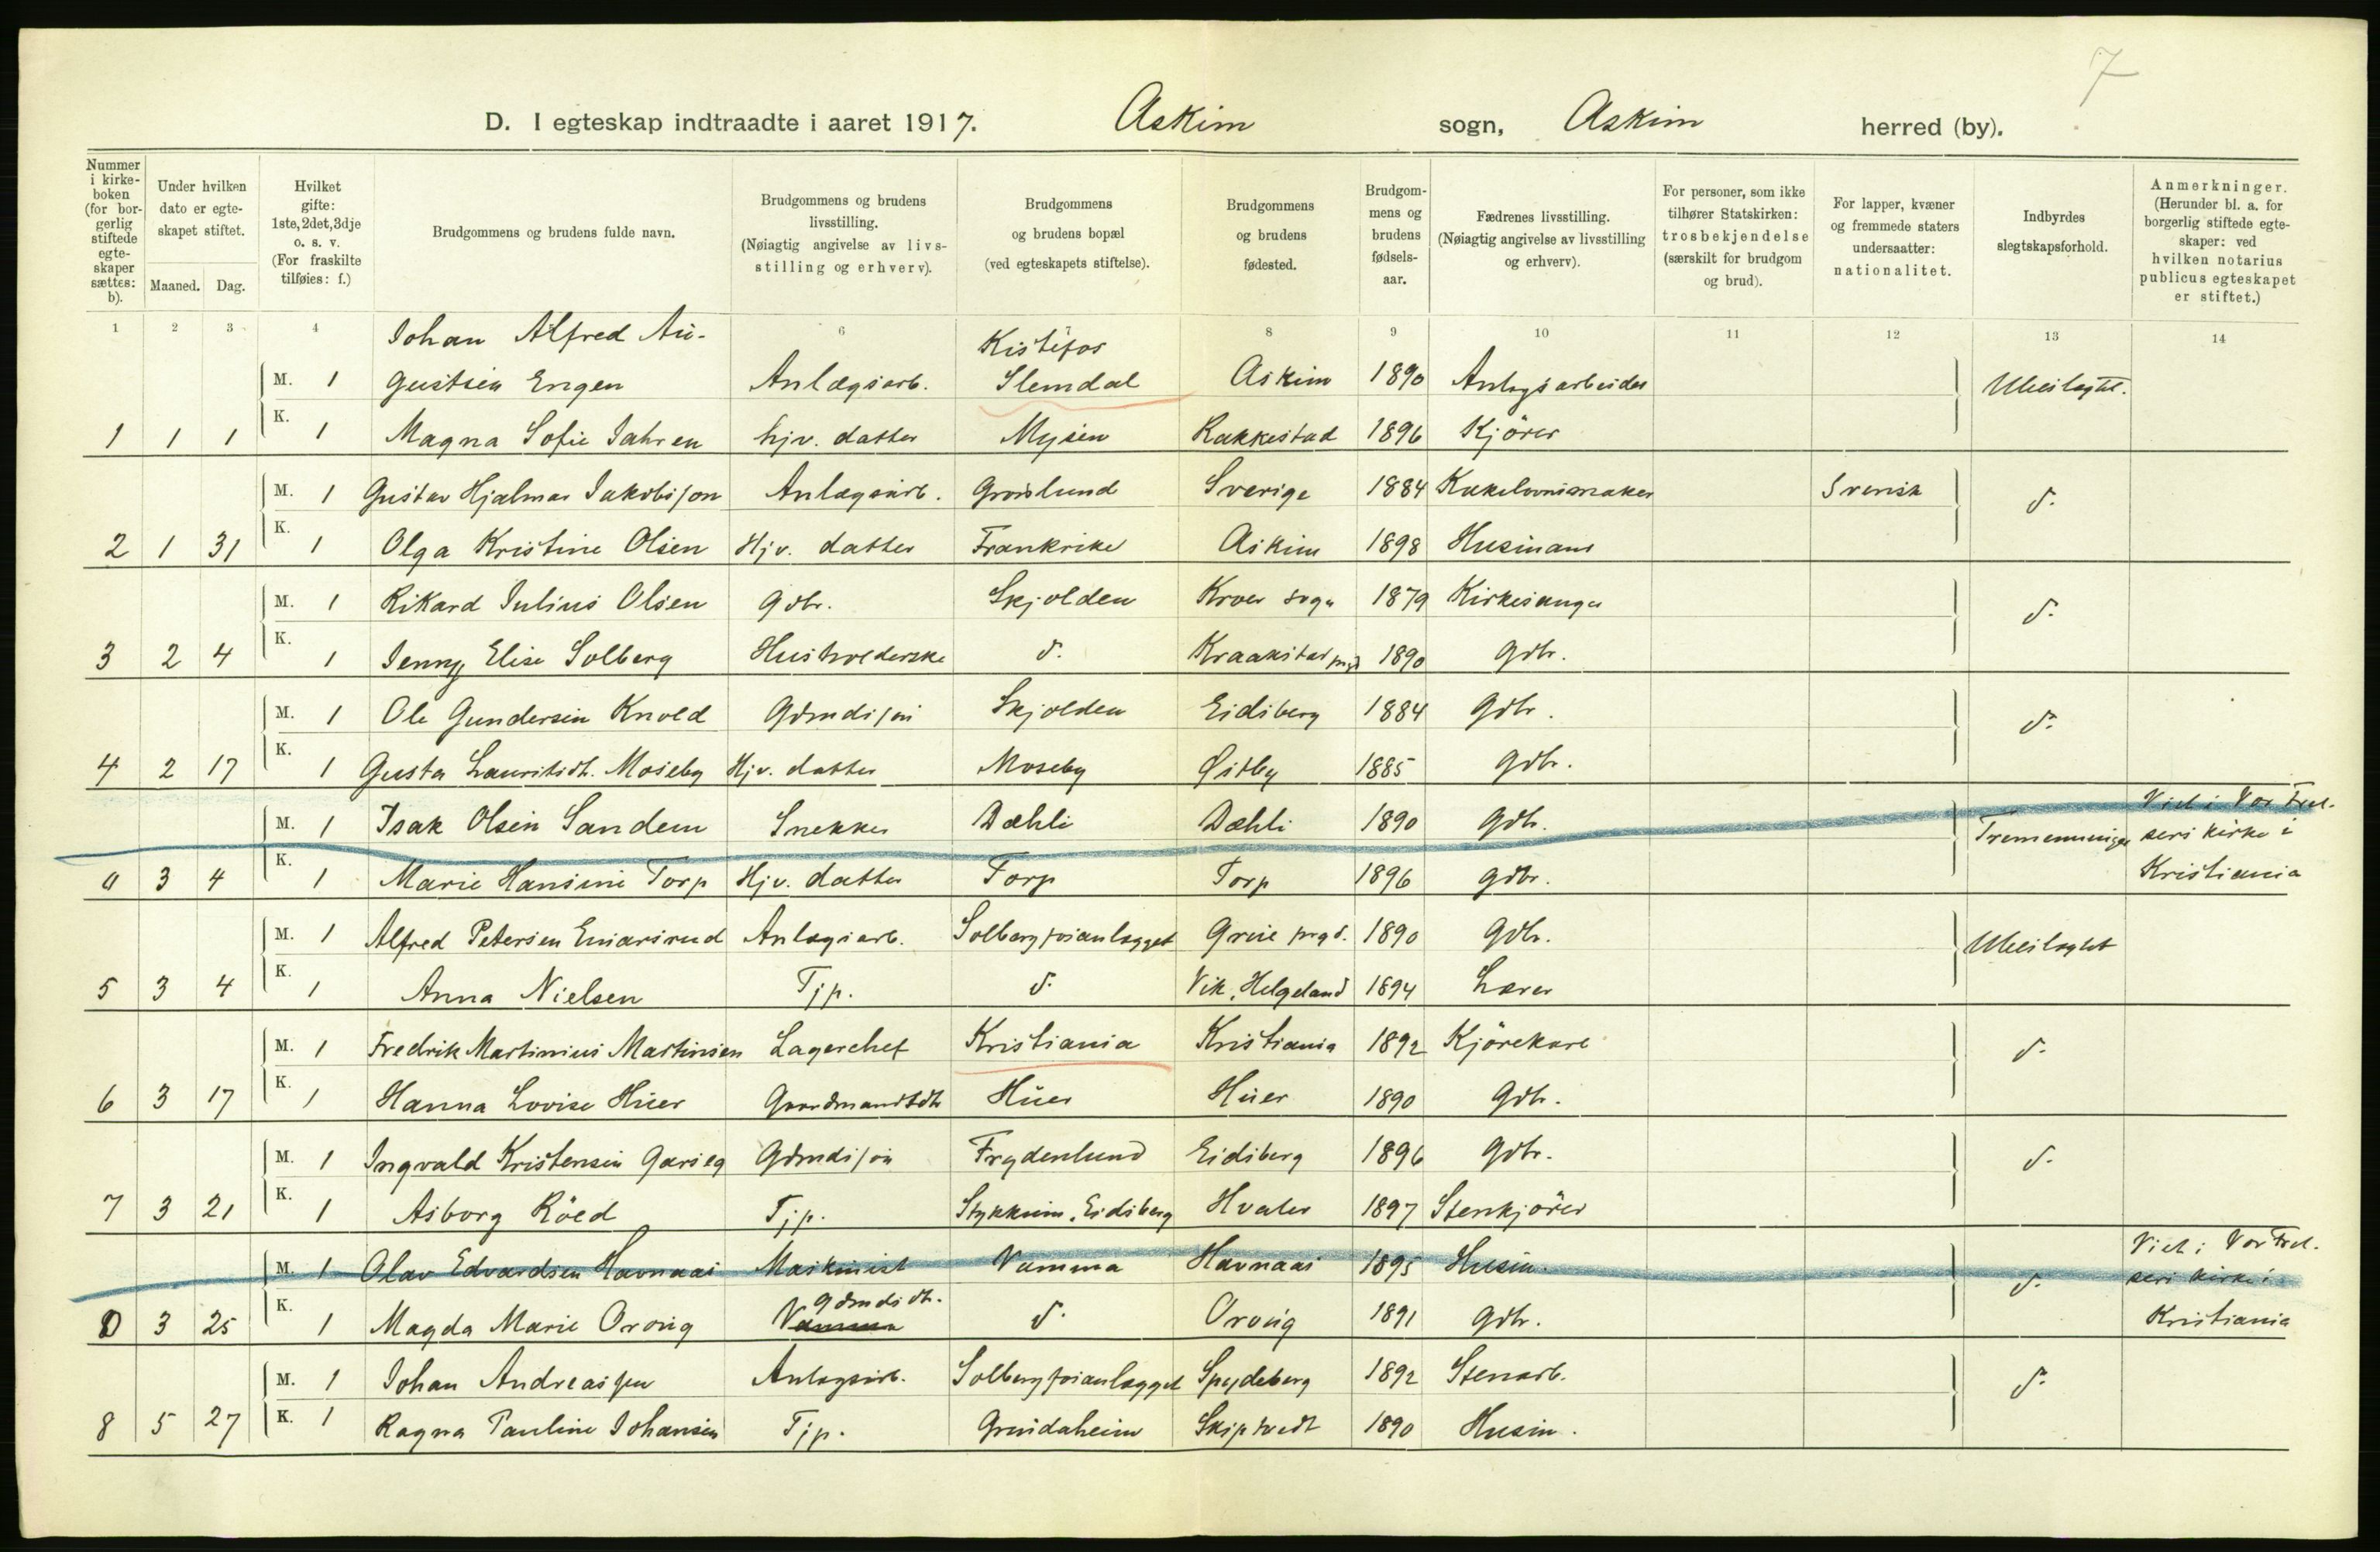 7
D. I egteskap indtraadte i aaret 1917. Askim sogn, Askim herred (by).
Nummer i kirkeboken (for borgerlig stiftede egteskaper sættes: b).
Under hvilken dato er egteskapet stiftet.
Maaned. Dag.
Hvilket gifte: 1ste, 2det, 3dje o. s. v. (For fraskilte tilføies: f.)
Brudgommens og brudens fulde navn.
Brudgommens og brudens livsstilling. (Nøiagtig angivelse av livsstilling og erhverv).
Brudgommens og brudens bopæl (ved egteskapets stiftelse).
Brudgommens og brudens fødested.
Brudgommens og brudens fødselsaar.
Fædrenes livsstilling. (Nøiagtig angivelse av livsstilling og erhverv).
For personer, som ikke tilhører Statskirken: trosbekjendelse (særskilt for brudgom og brud).
For lapper, kvæner og fremmede staters undersaatter: nationalitet.
Indbyrdes slegtskapsforhold.
Anmerkninger. (Herunder bl. a. for borgerlig stiftede egteskaper: ved hvilken notarius publicus egteskapet er stiftet.)
1 2 3 4 6 7 8 9 10 11 12 13 14
Johan Alfred Au- Kistefos
M. 1 gustsen Engen Anlægsarb. Slemdal Askim 1890 Anlegsarbeider Ubeslegtet.
1 1 1 K. 1 Magna Sofie Jahren hjv. datter Mysen Rakkestad 1896 Kjörer
M. 1 Gustav Hjalmar Jakobsson Anlægsarb. Grönlund Sverige 1884 Kakelovnsmaker Svensk d.
2 1 31 K. 1 Olga Kristine Olsen Hjv. datter Frankrike Askim 1898 Husmand
M. 1 Rikard Julius Olsen Gdbr. Skjolden Kroer sogn 1879 Kirkesanger d.
3 2 4 K. 1 Jenny Elise Solberg Husholderske d. Kraakstad prgd 1890 Gdbr.
M. 1 Ole Gundersen Knold Gdmdsson Skjolden Eidsberg 1884 Gdbr. d.
4 2 17 K. 1 Gusta Lauritsdt. Moseby Hjv. datter Moseby Østby 1885 Gdbr.
M. 1 Isak Olsen Sandem Snekker Dæhli Dæhli 1890 Gdb. Tremenninger Viet i Vor Frel-
sers kirke i
0 3 4 K. 1 Marie Hansine Torp Hjv. datter Torp Torp 1896 Gdbr. Kristiania
M. 1 Alfred Petersen Anlægsarb. Solbergfosanlægget Grue prgd. 1890 Gdbr. Ubeslegtet
5 3 4 K. 1 Anna Nielsen Tjp. d. Vik, Helgeland 1894 Lærer
M. 1 Fredrik Martinius Martinsen Lagerchef Kristiania Kristiania 1892 Kjörekarl d.
6 3 17 K. 1 Hanna Lovise Huer Gaardmandsdtr Huer Huer 1890 Gdbr.
M. 1 Ingvald Kristensen Garseg Gdmdsson Frydenlund Eidsberg 1896 Gdbr. d.
7 3 21 K. 1 Asborg Röed Tjp. Stykkum, Eidsberg Hvaler 1897 Stenkjörer
M. 1 Olav Edvardsen Havnaas Maskinist Vamma Havnaas 1895 Husm. d. Viet i Vor Frel-
sers kirke i
Gdmdsdt.
0 3 25 K. 1 Magda Marie Oraug Vamma d. Oraug 1891 Gdbr. Kristiania
M. 1 Johan Andreassen Anlegsarb. Solbergfosanlægget Spydeberg 1892 Stenarb. d.
8 5 27 K. 1 Ragna Pauline Johansen Tjp. Grindaheim Skiptvedt 1890 Husm.